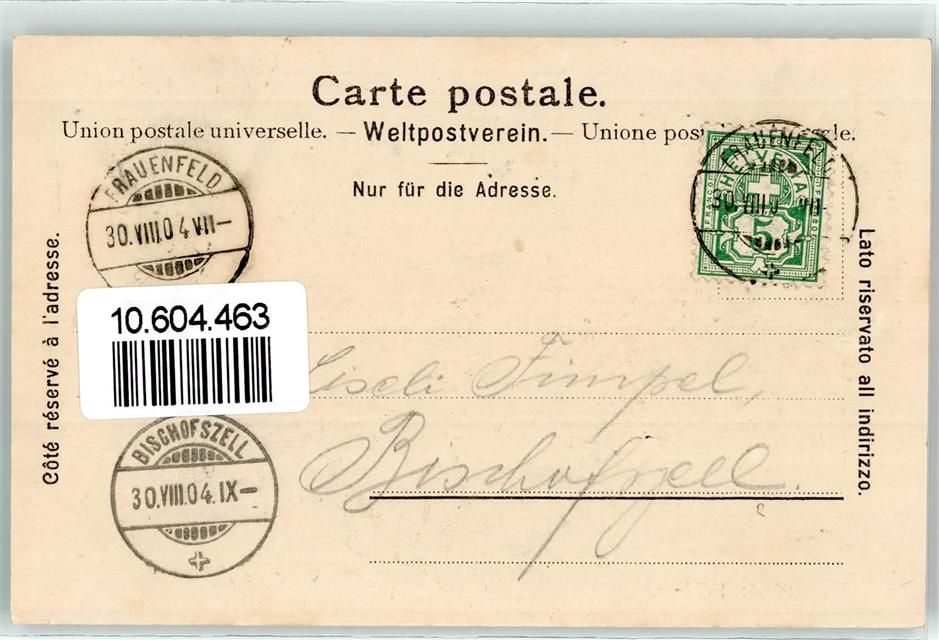 Carte postale.
Union postale universelle. — Weltpostverein. — Unione
Nur für die Adresse.
FRAUENFELD
30.VIII.04 VII—
FRAUENFELD
30.VIII.0 VII
HELVETIA
FRANCO
5
Côté réservé à l'adresse.
Lato riservato all indirizzo.
10.604.463
Liseli Fimpel,
Bischofszell.
BISCHOFSZELL
30.VIII.04.IX—